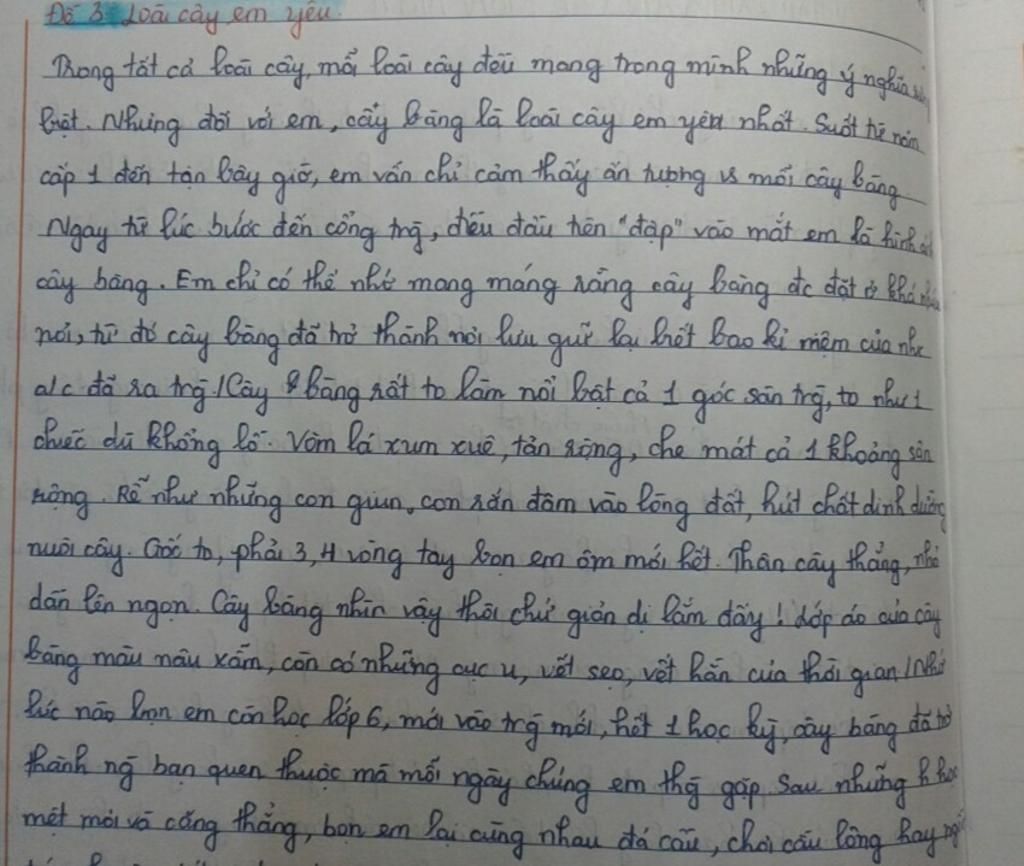 Đề 3 Loài cây em yêu.
Trong tất cả loài cây, mỗi loài cây đều mang trong mình những ý nghĩa
biệt. Nhưng đối với em, cây bàng là loài cây em yêu nhất. Suốt từ năm
cấp 1 đến tận bây giờ, em vẫn chỉ cảm thấy ấn tượng vs mỗi cây bàng
Ngay từ lúc bước đến cổng trg, điều đầu tiên "đập" vào mắt em là hình
cây bàng. Em chỉ có thể nhớ mang máng rằng cây bàng đc đặt ở khá
nơi, từ đó cây bàng đã trở thành nơi lưu giữ lại biết bao kỉ niệm của
a/c đã ra trg./Cây bàng rất to làm nổi bật cả 1 góc sân trg, to như 1
chiếc dù khổng lồ. Vòm lá xum xuê, tán rộng, che mát cả 1 khoảng sân
rộng. Rễ như những con giun, con rắn đâm vào lòng đất, hút chất dinh dưỡng
nuôi cây. Gốc to, phải 3, 4 vòng tay bọn em ôm mới hết. Thân cây thẳng, nhỏ
dần lên ngọn. Cây bàng nhìn vậy thôi chứ giản dị lắm đấy! Lớp áo của cây
bàng màu nâu xẫm, còn có những cục u, vết sẹo, vết hằn của thời gian/Nhớ
lúc nào bọn em còn học lớp 6, mới vào trg mới, hết 1 học kỳ, cây bàng đã trở
thành ng bạn quen thuộc mà mỗi ngày chúng em thg gặp. Sau những h học
mệt mỏi và căng thẳng, bọn em lại cùng nhau đá cầu, chơi cầu lông hay